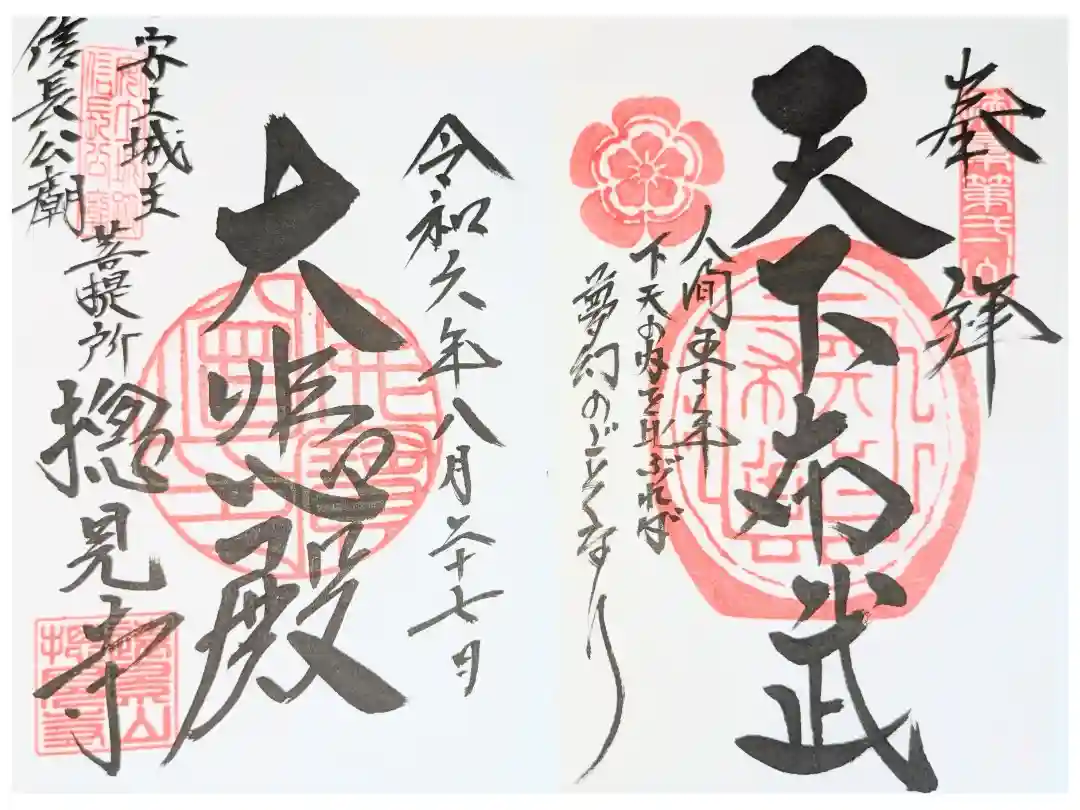 奉拝
天下布武
人間五十年
下天の内を比ぶれば
夢幻のごとくなり
令和六年八月二十七日
大悲殿
安土城主
信長公廟
菩提所
摠見寺